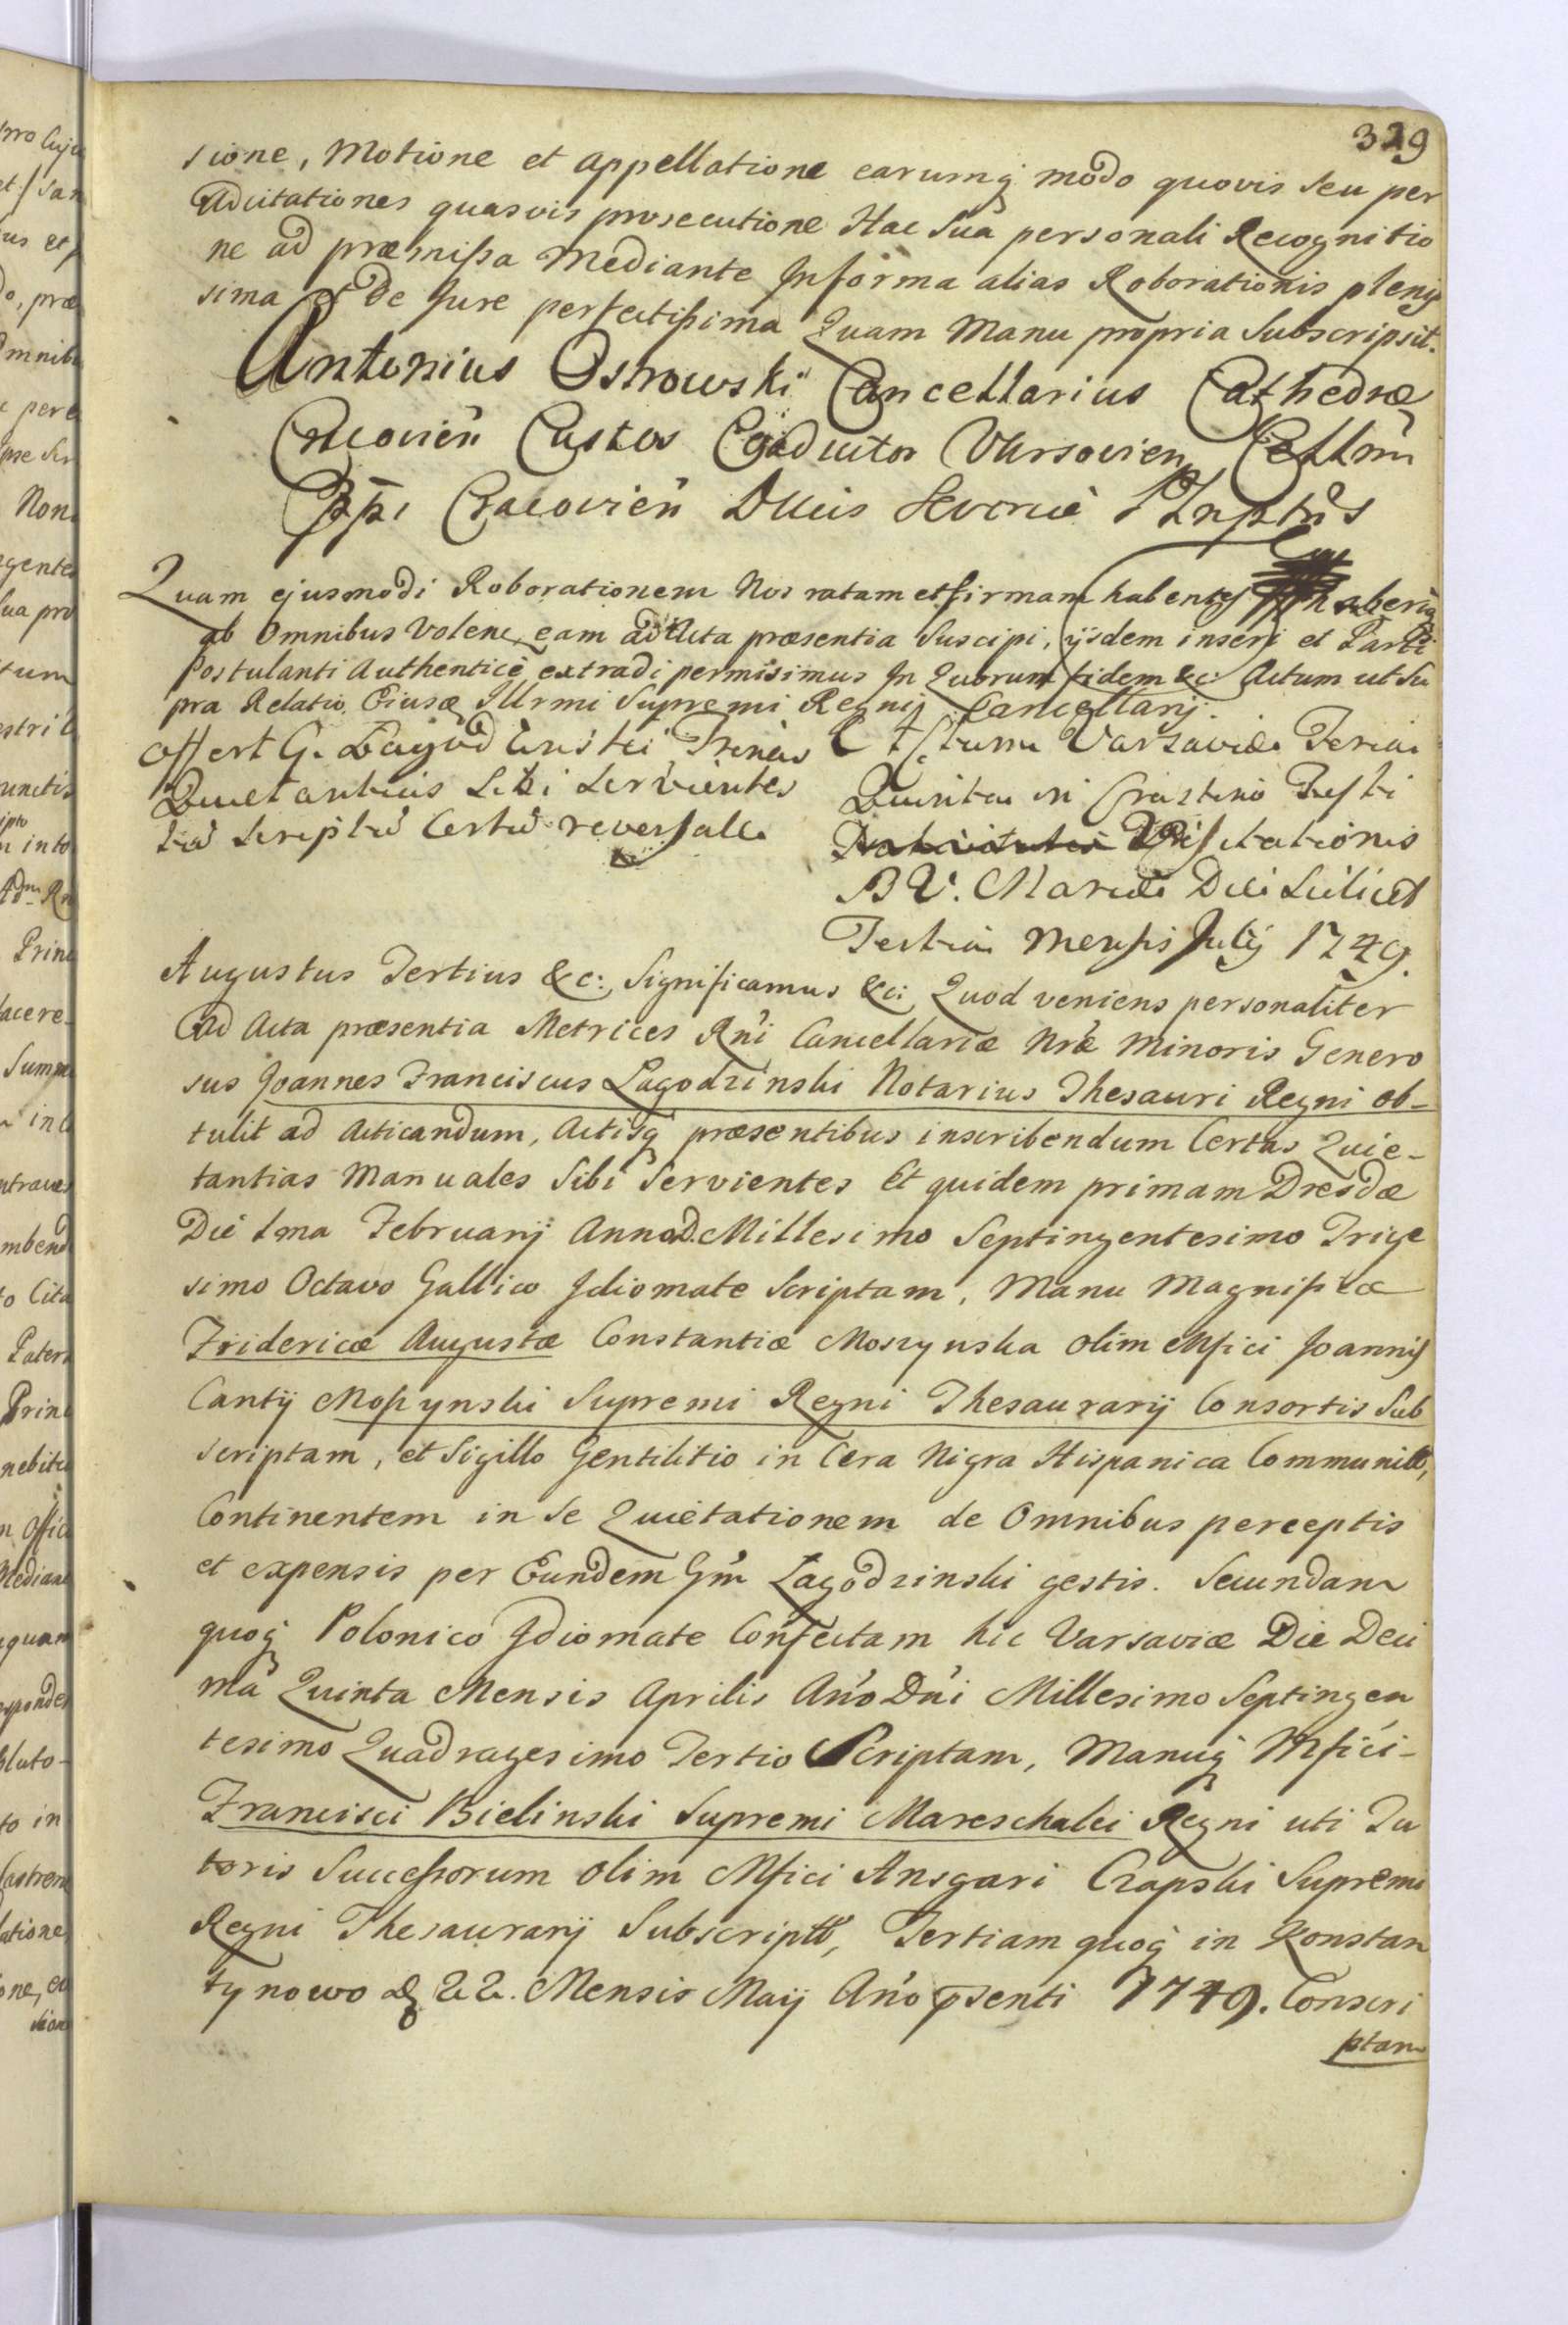 329
sione, Motione et appellatione earumq modo quovis seu per
Adcitationes quasvis prosecutione Hac Sua personali Recognitio
ne ad præmissa Mediante Informa alias Roborationis pleniſ
sima et De Jure perfectissima Quam Manu propria Subscripsit.
Antonius Ostrowski Cancellarius Cathedræ
Cracovien Custos Coadiutor Varsovien
Cracovien Ducis Severiæ
Quam ejusmodi Roborationem Nos ratam et firmam habentes
ab Omnibus Volenc eam ad Acta præsentia Suscipi, ijsdem inseri et Parti
Postulanti Authenticè extradi permisimus In Quorum fidem &c: Actum ut Su
pra Relatio Eiusd Illrmi Supremi Regnij Cancellarij.
Offert G.
Quietantias Sibi Servientes
reversalle
Actum Varsaviæ Feria
Quinta in Crastino Festi
Visitationis
B V. Mariæ Die Scilicet
Tertia Mensis Julij 1749.
Augustus Tertius &c: Significamus &c: Quod veniens personaliter
Ad Acta præsentia Metrices Rni Cancellariæ Nræ Minoris Genero
sus Joannes Franciscus Łagodzinski Notarius Thesauri Regni ob-
tulit ad Acticandum, Actisq præsentibus inscribendum Certas Quie-
tantias Manuales Sibi Servientes Et quidem primam Dresdæ
Die 1ma Februarij Anno D. Millesimo Septingentesimo Trige
simo Octavo Gallico Idiomate Scriptam, Manu Magnificæ
Fridericæ Augustæ Constantiæ Moszynska olim Mfici Joannis
Cantij Moszynski Supremi Regni Thesaurarij Consortis Sub
scriptam, et Sigillo Gentilitio in Cera Nigra Hispanica Communitt,
Continentem in Se Quietationem de Omnibus perceptis
et expensis per Eundem Gm Łagodzinski gestis. Secundam
quoq Polonico Idiomate Confectam hic Varsaviæ Die Deci
ma Quinta Mensis Aprilis Ano Dni Millesimo Septingen
tesimo Quadragesimo Tertio Scriptam, Manuq Mfici-
Francisci Bielinski Supremi Mareschalci Regni uti Tu
toris Successorum olim Mfici Ansgari Czapski Supremi
Regni Thesaurarij Subscriptt, Tertiam quoq in Konstan
tynowo d 22. Mensis Maij Ano psenti 1749. Conscri
ptam